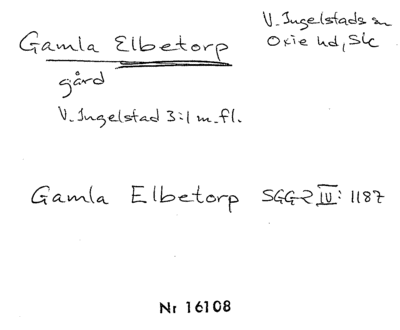 Gamla Elbetorp
V. Ingelstads sn
Oxie hd, Sk
gård
V. Ingelstad 3:1 m.fl.
Gamla Elbetorp SGG-R IV: 1187
Nr 16108